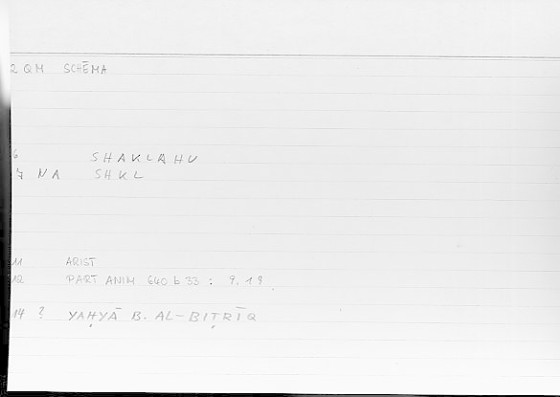 2 QM SCHĒMA
6 SHAKLAHU
7 NA SHKL
11 ARIST
12 PART ANIM 640 b 33 : 9.19
14 ? YAḤYĀ B. AL-BIṬRĪQ